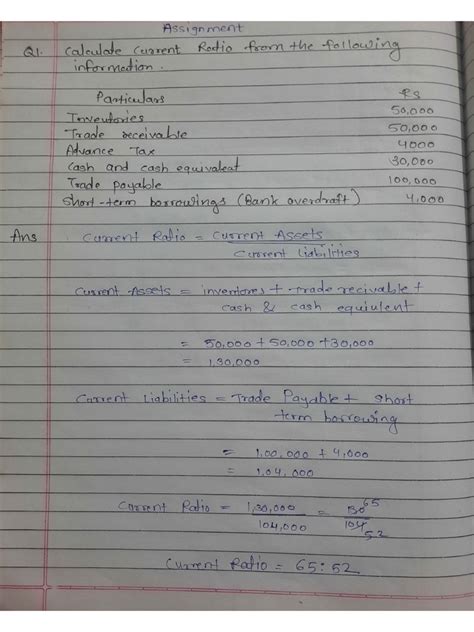 Assignment
Q1. Calculate Current Ratio from the following
information.
Particulars Rs
Inventories 50,000
Trade receivable 50,000
Advance Tax 4000
Cash and cash equivalent 30,000
Trade payable 100,000
Short-term borrowings (Bank overdraft) 4,000
Ans Current Ratio = Current Assets
Current Liabilities
Current Assets = inventores + trade recivable +
cash & cash equiulent
= 50,000 + 50,000 + 30,000
= 1,30,000
Current Liabilities = Trade Payable + Short
term borrowing
= 1,00,000 + 4,000
= 1,04,000
Current Ratio = 1,30,000 = 130 65
104,000 104 52
Current Ratio = 65:52